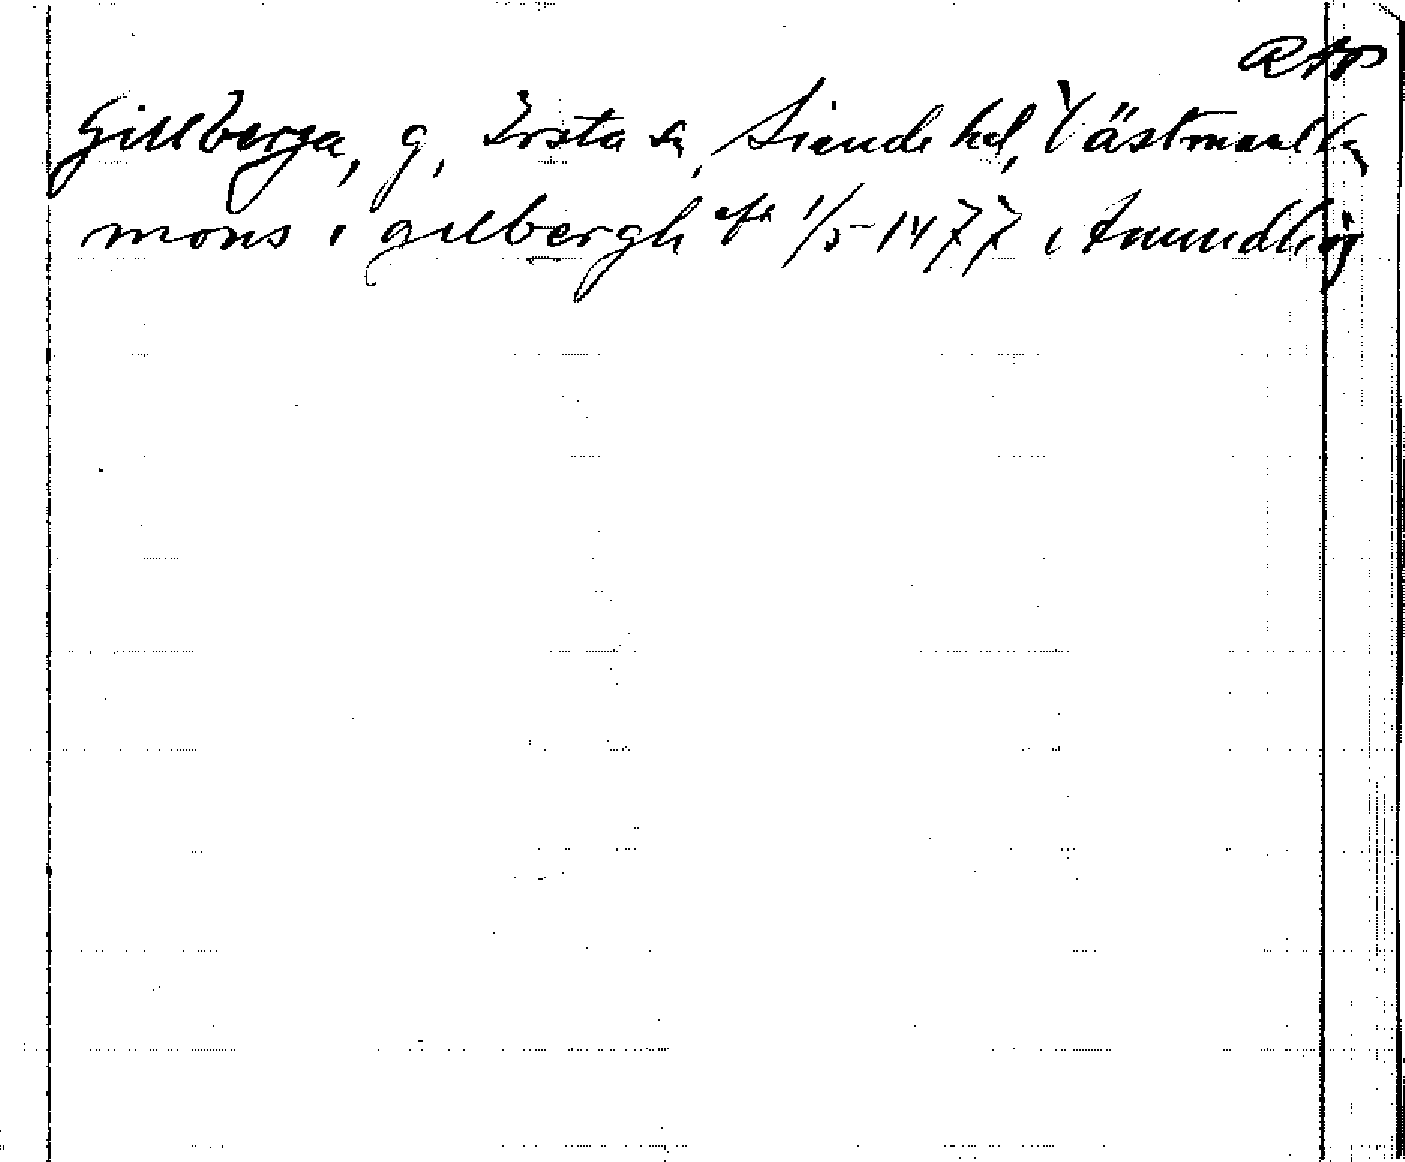 RAP
Gillberga, g, Irsta sn, Siende hd, Västmanl
mons i gilbergh afh 1/5-1477 i Anundhög